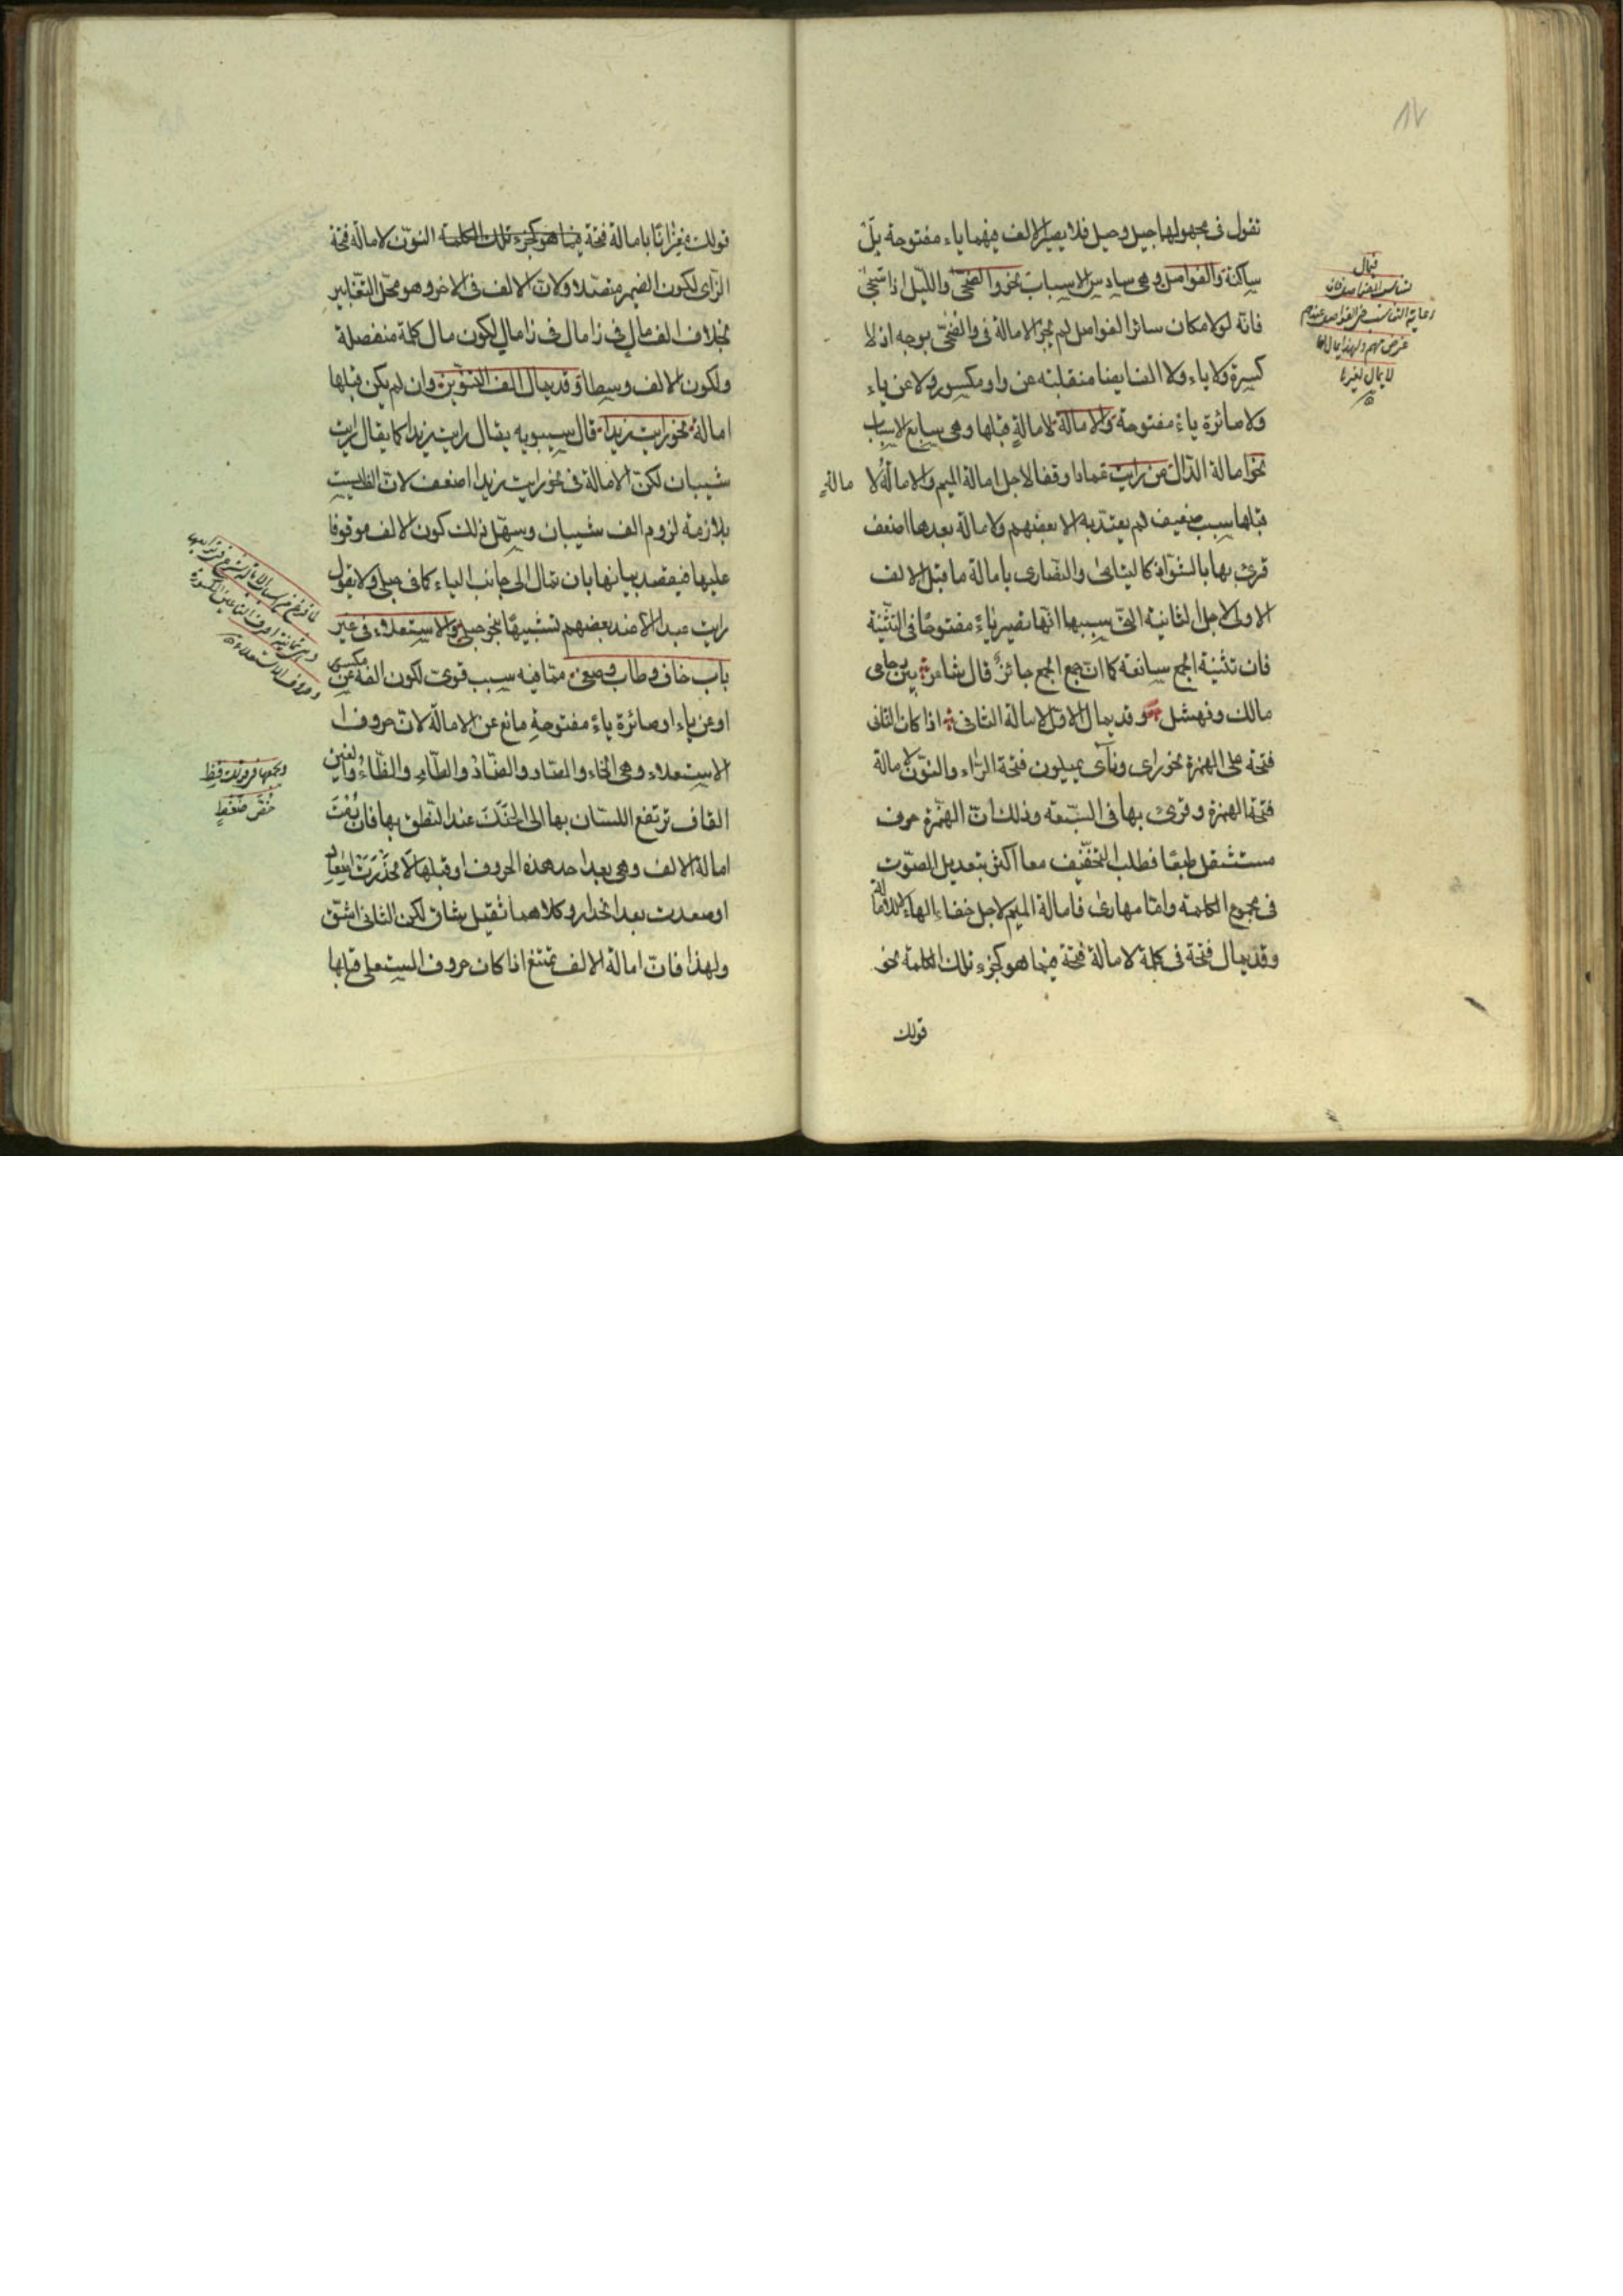 ٨٧
نقول فى مجهولها جيل وحيل فلا يصير الالف فيهما ياء مفتوحة بل
ساكنة والفواصل وهى سادس الاسباب نحو والضحى والليل اذا سجى
فانه لولا مكان سائر الفواصل لم يجز الامالة فى والضحى بوجه اذ لا
كسرة ولا ياء ولا الف ايضا منقلبة عن واو مكسور ولا عن ياء
ولا صائرة ياء مفتوحة والامالة لامالة قبلها وهى سابع الاسباب
نحو امالة الدال من رايت عمادا وقفا لاجل امالة الميم والامالة لا مالة
قبلها سبب ضعيف لم يعتد به الا بعضهم ولامالة بعدها اضعف
قرئ بها بالشواذ كاليتامى والنصارى بامالة ما قبل الالف
الاولى لاجل الثانية التى سببها انها تصير ياء مفتوحا فى التثنية
فان تثنية الجمع سائغة كما ان جمع الجمع جائز قال شاعر بين رماحى
مالك ونهشل وقد يمال الاول لامالة الثانى اذا كان الثانى
فتحة على الهمزة نحو راى ونأى يميلون فتحة الراء والنون لامالة
فتحة الهمزة وقرئ بها فى السبعة وذلك ان الهمزة حرف
مستثقل طبعا فطلب التخفيف معها اكثر بتعديل الصوت
فى مجموع الكلمة واما مهارى فامالة الميم لاجل خفاء الهاء
وقد يمال فتحة فى كلمة لامالة فتحة فيما هو كجزء تلك الكلمة نحو
قولك
فيمال
رعاية التناسب فى الفواصل عندهم
غرض مهم ولهذا يمال لها
لا يمال لغيرها
قولك معزانا بامالة فتحة فيما هو كجزء تلك الكلمة النون لامالة فتحة
الزاى لكون الضمير متصلا ولان الالف فى الاخر وهو محل التغيير
بخلاف الف مال فى ذا مال فى ذا مال لكون مال كلمة منفصلة
ولكون الالف وسطا وقد يمال الف التنوين وان لم يكن قبلها
امالة نحو رايت زيدا قال سيبويه يقال رايت زيدا كما يقال رايت
شيبان لكن الامالة فى نحو رايت زيدا اضعف لان الف ليست
بلازمة لزوم الف شيبان وسهل ذلك كون الالف موقوفا
عليها فيقصد بيانها بان تمال الى جانب الياء كما فى حبلى ولا يقول
رايت عبدا الا عند بعضهم تشبيها بنحو حبلى والاستعلاء فى غير
باب خاف وطاب وصغى مما فيه سبب قوى لكون الفه عن مكسور
او عن ياء او صائرة ياء مفتوحة مانع عن الامالة لان حروف ا
الاستعلاء وهى الخاء والصاد والضاد والطاء والظاء والغين
القاف ترتفع اللسان بها الى الحنك عند النطق بها فان
امالة الالف وهى بعد احد هذه الحروف او قبلها لانحدرت
او صعدت بعد انحدار وكلاهما ثقيل شاق لكن الثانى اشق
ولهذا فان امالة الالف تمتنع اذا كان حروف المستعلى قبلها
ويجمعها قولك قظ
خص ضغط